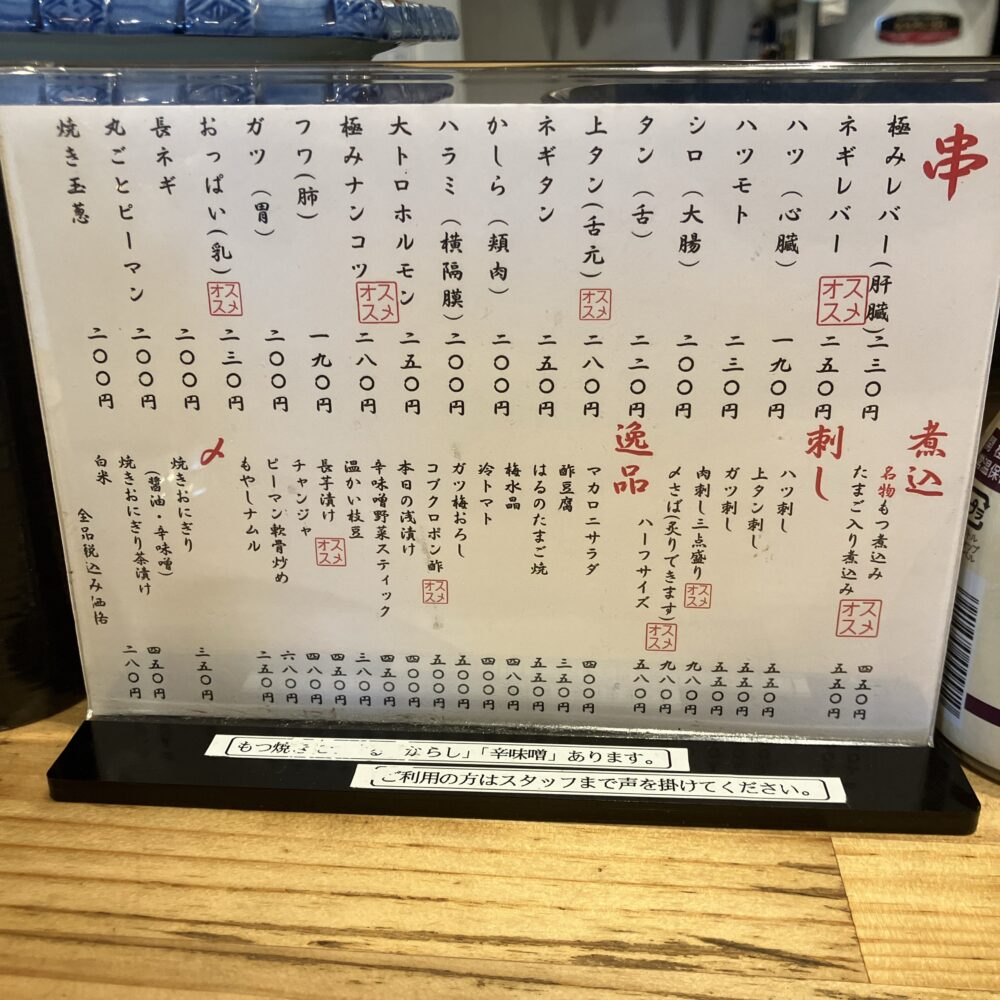 串
極みレバー(肝臓) 二三〇円
ネギレバー オススメ 二五〇円
ハツ(心臓) 一九〇円
ハツモト 二三〇円
シロ(大腸) 二〇〇円
タン(舌) 二二〇円
上タン(舌元) オススメ 二八〇円
ネギタン 二五〇円
かしら(頬肉) 二〇〇円
ハラミ(横隔膜) 二〇〇円
大トロホルモン 二五〇円
極みナンコツ オススメ 二八〇円
フワ(肺) 一九〇円
ガツ(胃) 二〇〇円
おっぱい(乳) オススメ 二三〇円
長ネギ 二〇〇円
丸ごとピーマン 二〇〇円
焼き玉葱 二〇〇円
煮込
名物もつ煮込み 四五〇円
たまご入り煮込み オススメ 五五〇円
刺し
ハツ刺し 五五〇円
上タン刺し 五五〇円
ガツ刺し 五五〇円
肉刺し三点盛り オススメ 九八〇円
〆さば(炙りできます) オススメ 九八〇円
ハーフサイズ 五八〇円
逸品
マカロニサラダ 四〇〇円
酢豆腐 三五〇円
はるのたまご焼 五五〇円
梅水晶 四八〇円
冷トマト 四〇〇円
ガツ梅おろし 五五〇円
コブクロポン酢 オススメ 五〇〇円
本日の浅漬け 四〇〇円
辛味噌野菜スティック 四〇〇円
温かい枝豆 三八〇円
長芋漬け オススメ 四五〇円
チャンジャ 四八〇円
ピーマン軟骨炒め 六八〇円
もやしナムル 二五〇円
〆
焼きおにぎり 三五〇円
(醤油・辛味噌)
焼きおにぎり茶漬け 四五〇円
白米 二八〇円
全品税込み価格
もつ焼き からし」「辛味噌」あります。
ご利用の方はスタッフまで声を掛けてください。